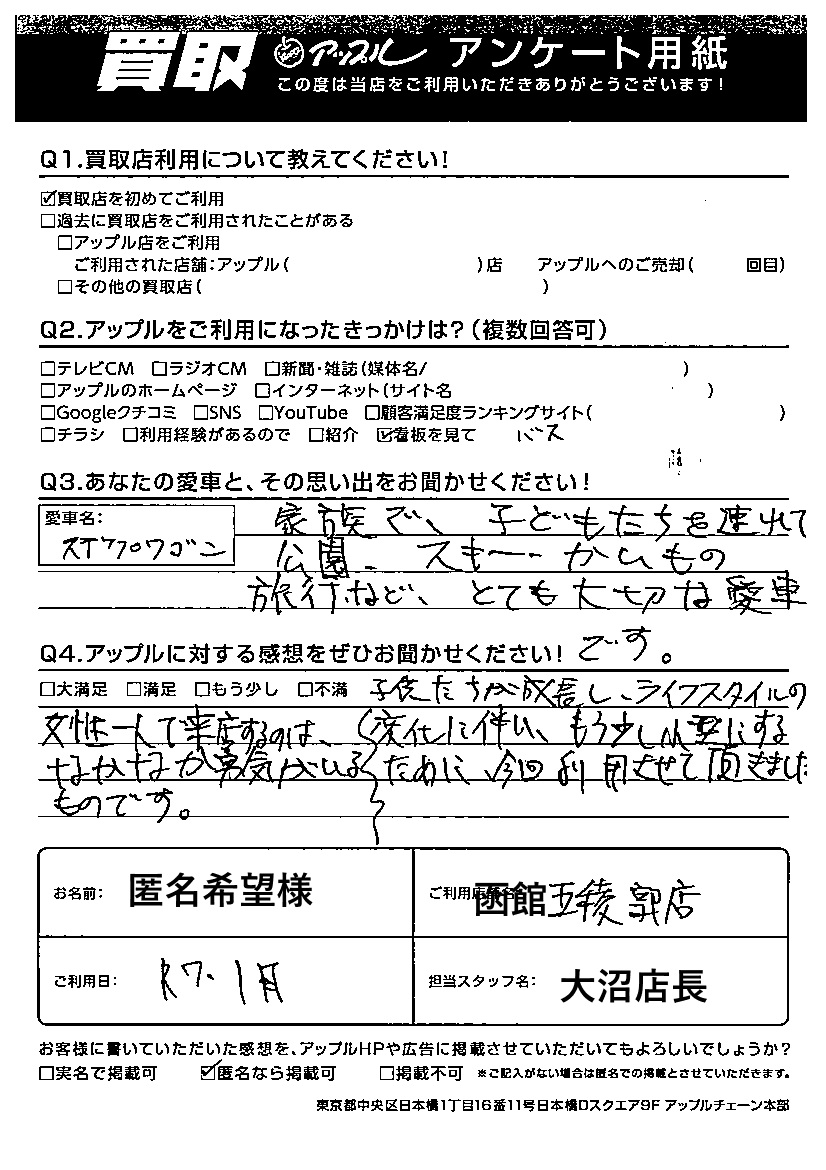 買取 アップル アンケート用紙
この度は当店をご利用いただきありがとうございます!
Q1.買取店利用について教えてください!
☑買取店を初めてご利用
□過去に買取店をご利用されたことがある
□アップル店をご利用
ご利用された店舗:アップル( )店 アップルへのご売却( 回目)
□その他の買取店( )
Q2.アップルをご利用になったきっかけは?(複数回答可)
□テレビCM □ラジオCM □新聞・雑誌(媒体名/ )
□アップルのホームページ □インターネット(サイト名 )
□Googleクチコミ □SNS □YouTube □顧客満足度ランキングサイト( )
□チラシ □利用経験があるので □紹介 ☑看板を見て バス
Q3.あなたの愛車と、その思い出をお聞かせください!
愛車名:
ステップワゴン
家族で、子どもたちを連れて
公園、スキー、かいもの
旅行など、とても大切な愛車
です。
Q4.アップルに対する感想をぜひお聞かせください!
□大満足 □満足 □もう少し □不満
女性一人で来店するのは、
なかなか勇気がいる
ものです。
子供たちが成長し、ライフスタイルの
変化に伴い、もう少し小型にする
ために、今回利用させて頂きました
お名前: 匿名希望様
ご利用店舗名: 函館五稜郭店
ご利用日: R7.1月
担当スタッフ名: 大沼店長
お客様に書いていただいた感想を、アップルHPや広告に掲載させていただいてもよろしいでしょうか?
□実名で掲載可 ☑匿名なら掲載可 □掲載不可 ※ご記入がない場合は匿名での掲載とさせていただきます。
東京都中央区日本橋1丁目16番11号日本橋Dスクエア9F アップルチェーン本部